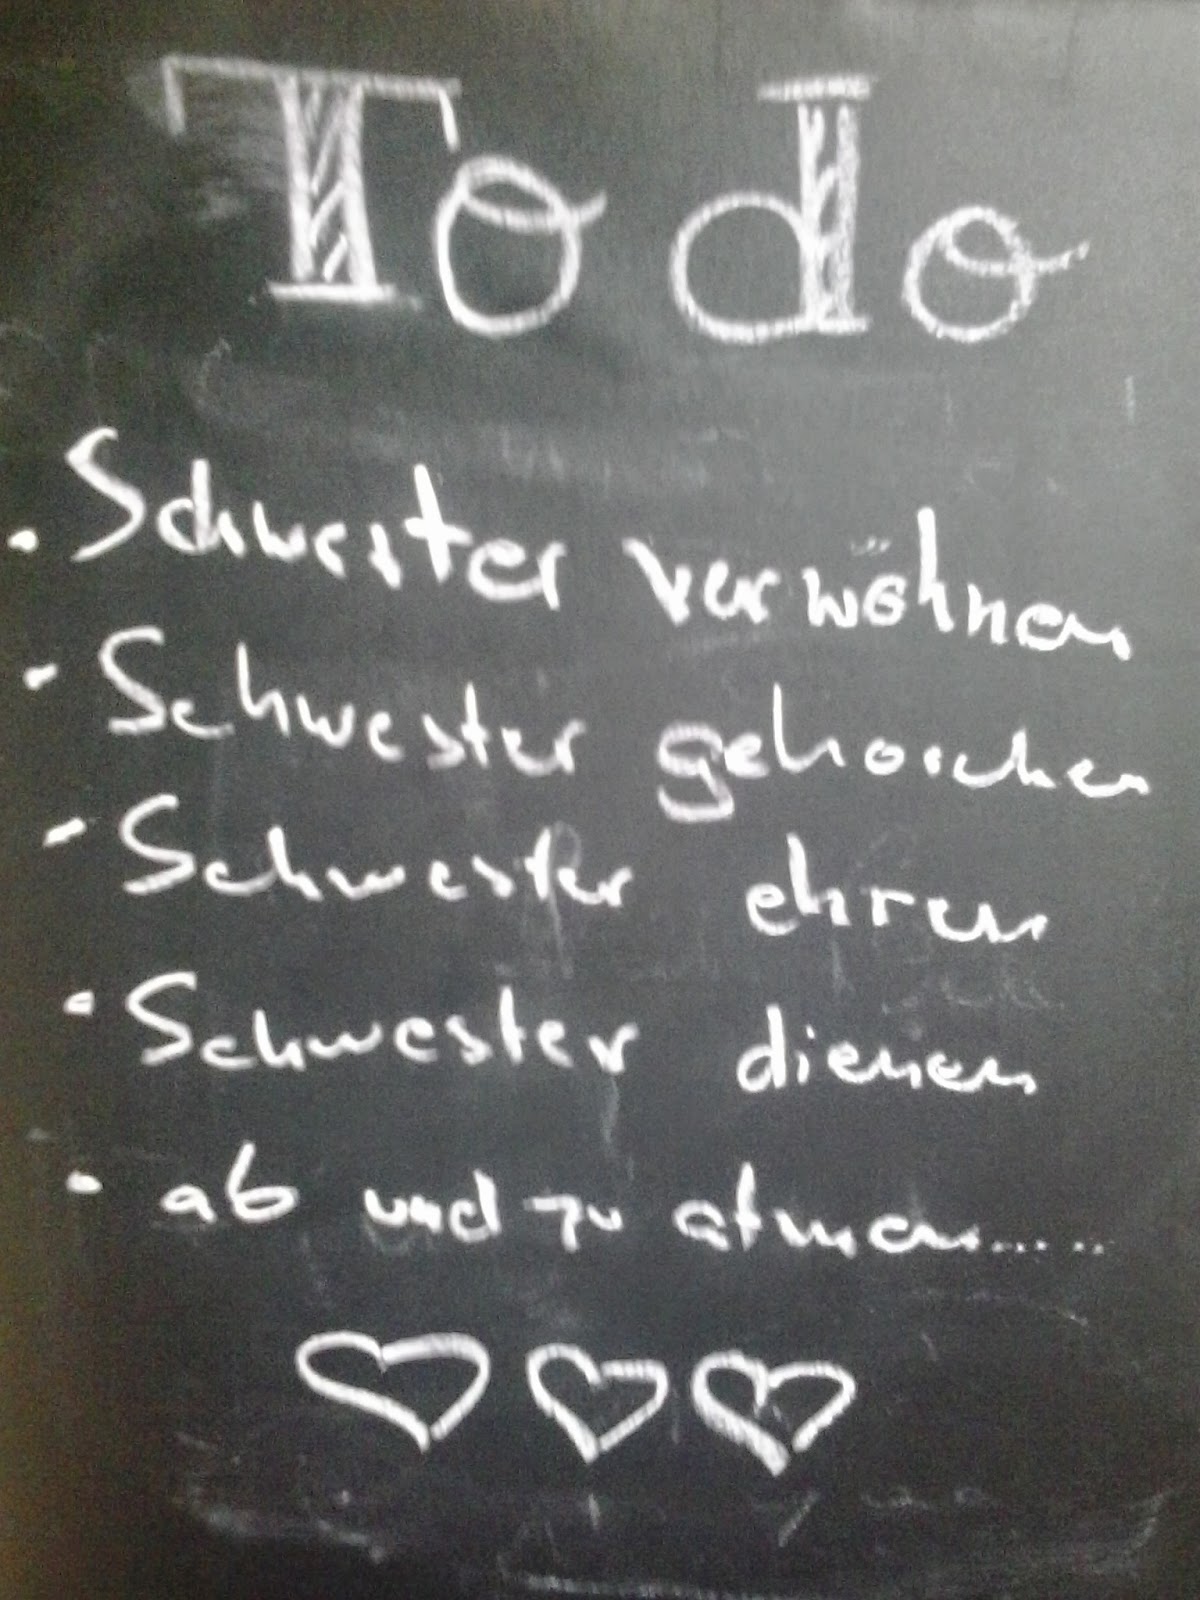 To do
· Schwester verwöhnen
· Schwester gehorchen
· Schwester ehren
· Schwester dienen
· ab und zu atmen......